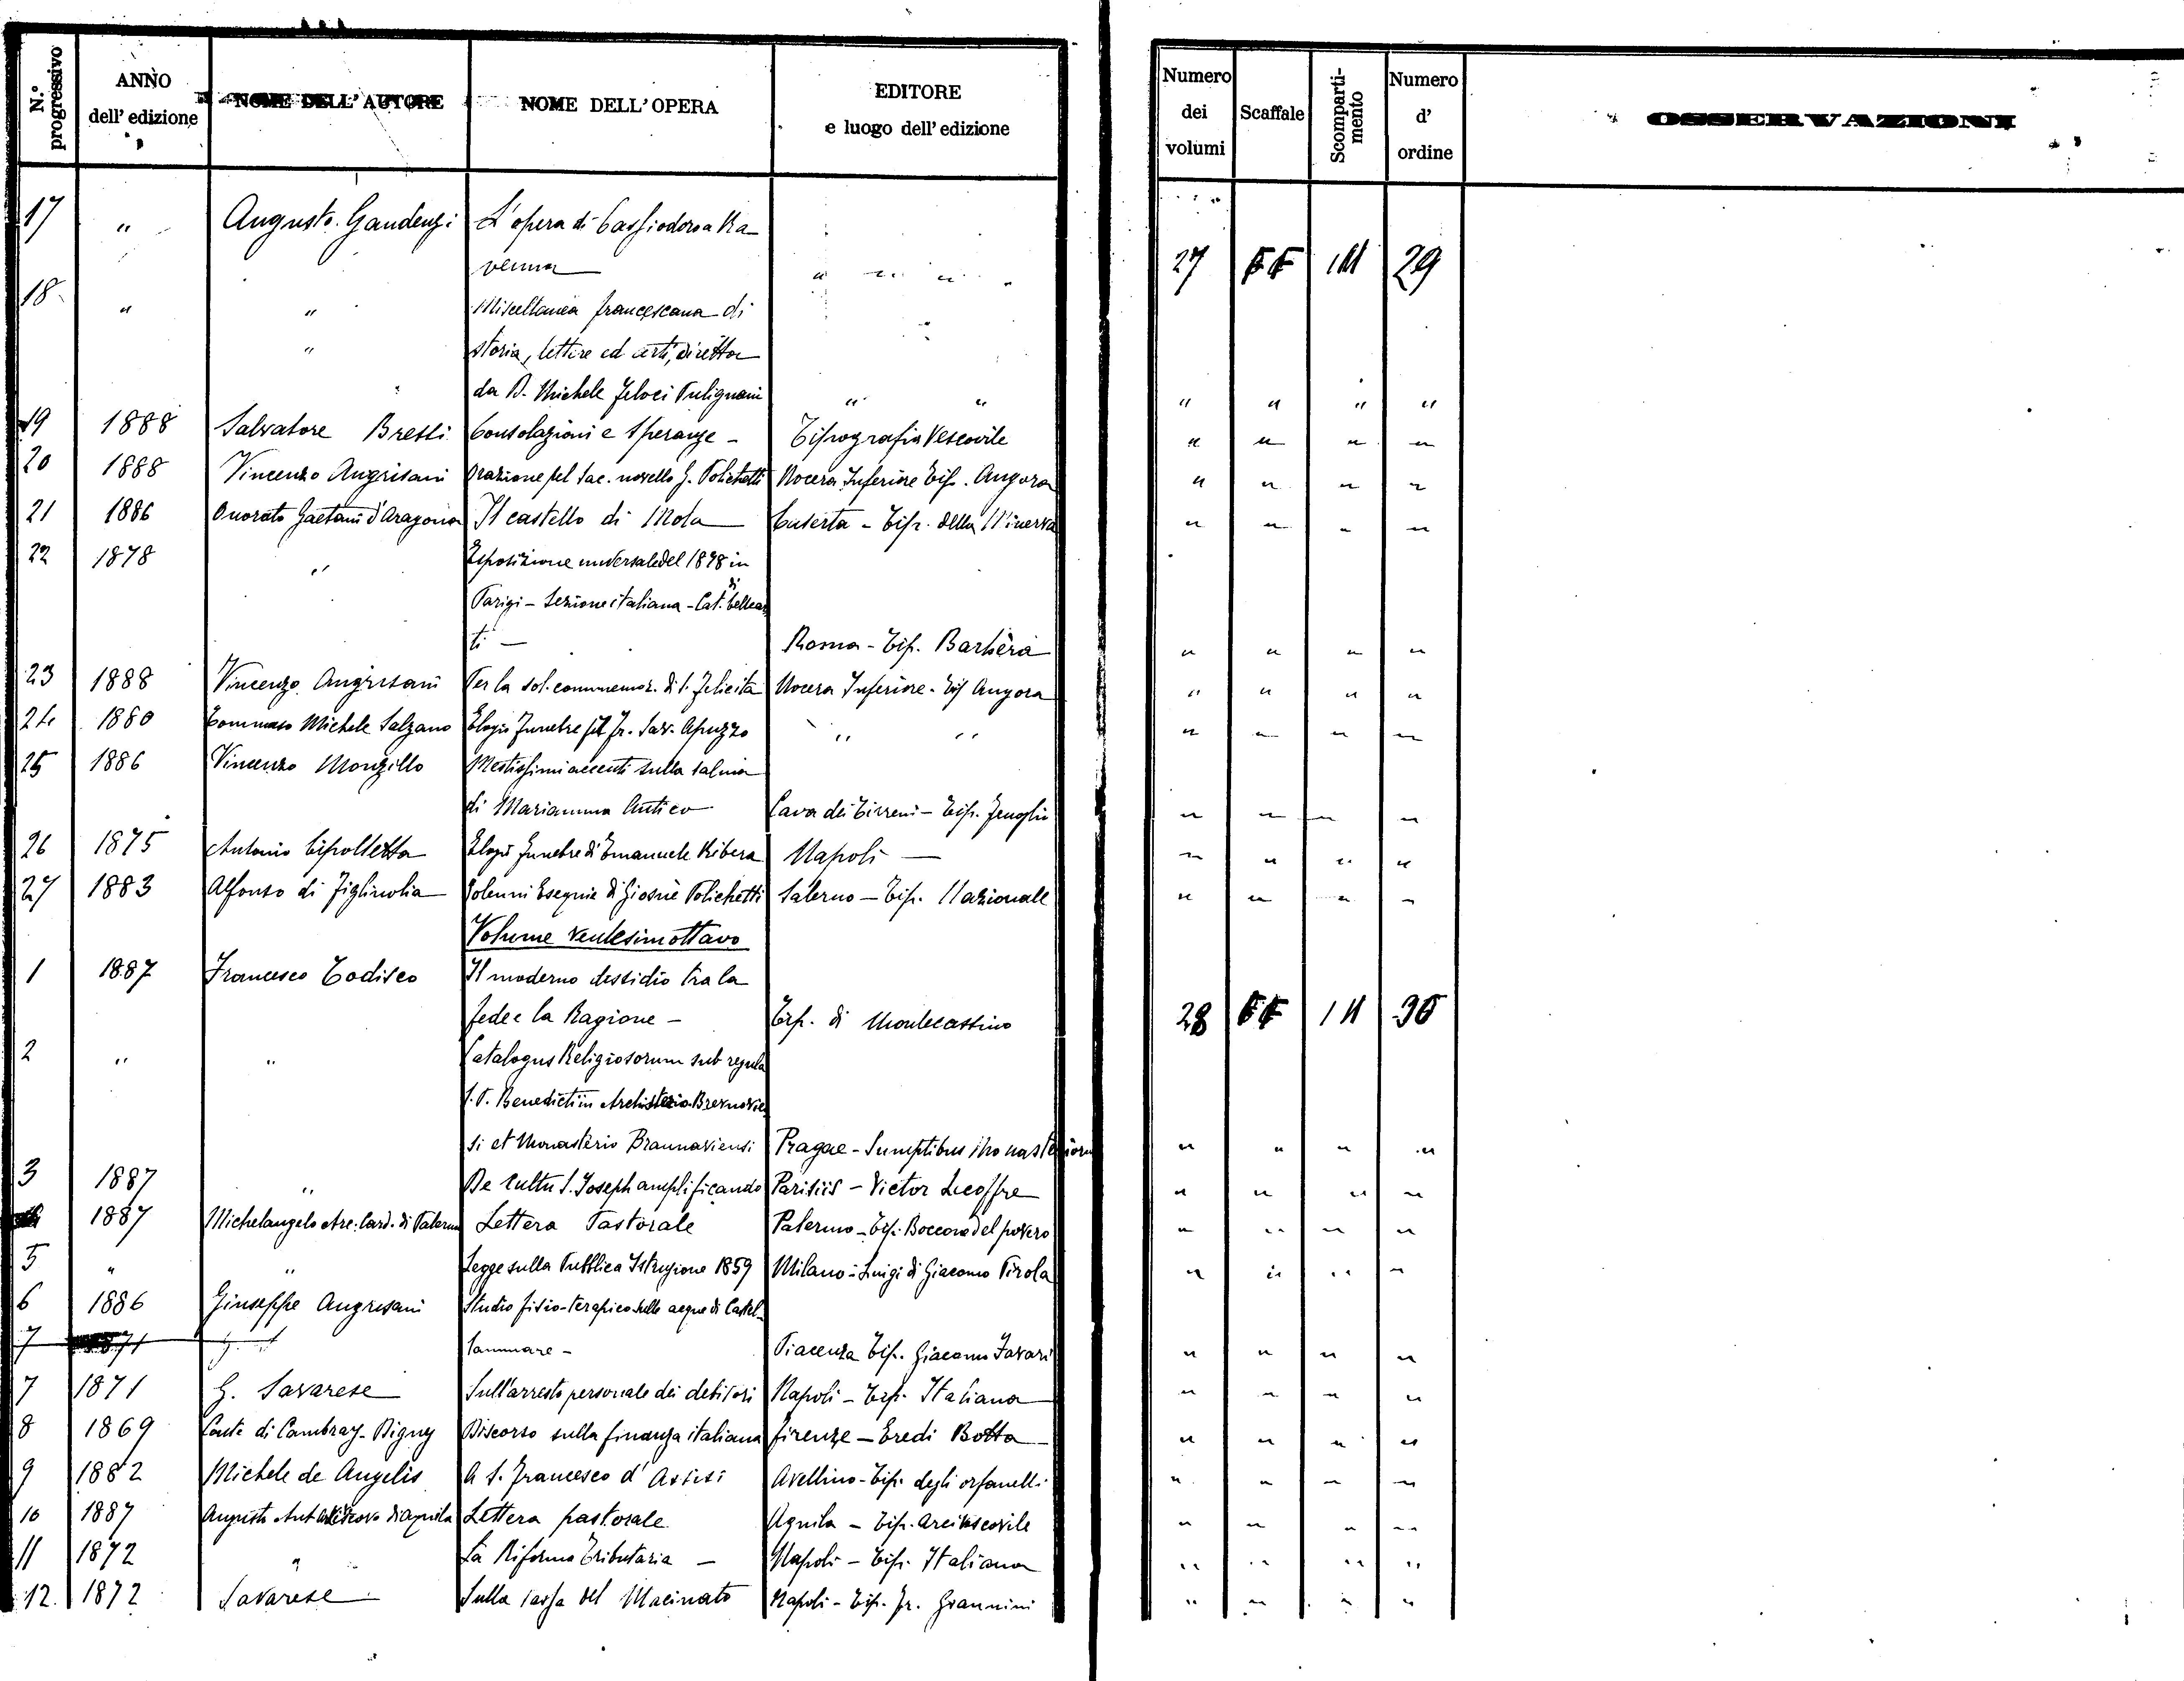 N.° progressivo | ANNO dell' edizione | NOME DELL' AUTORE | NOME DELL' OPERA | EDITORE e luogo dell' edizione | Numero dei volumi | Scaffale | Scomparti-mento | Numero d' ordine | OSSERVAZIONI
17 | " | Augusto Gaudenzi | L'opera di Cassiodoro a Ra-
venna | " " " | 27 | 29
18 | " | " | Miscellanea francescana di
" | storia, lettere ed arti, diretta
da D. Michele Faloci Pulignani | " " | " | " | " | "
19 | 1888 | Salvatore Bressi | Consolazioni e Speranze - | Tipografia Vescovile | " | " | " | "
20 | 1888 | Vincenzo Angrisani | Orazione pel Sac. novello G. Polichetti | Nocera Inferiore Tip. Angora | " | " | " | "
21 | 1886 | Onorato Gaetani d'Aragona | Il castello di Mola | Caserta - Tip. della Minerva | " | " | " | "
22 | 1878 | " | Esposizione universale del 1878 in
Parigi - Sezione italiana - Cat. di bellear
ti - | Roma - Tip. Barbèra | " | " | " | "
23 | 1888 | Vincenzo Angrisani | Per la sol. commemor. di S. Felicita | Nocera Inferiore - Tip Angora | " | " | " | "
24 | 1880 | Tommaso Michele Salzano | Elogio Funebre pel Fr. Sav. Apuzzo | " " | " | " | " | "
25 | 1886 | Vincenzo Mongillo | Mestissimi accenti sulla salma
di Marianna Antico | Cava dei Tirreni - Tip. | " | " | " | "
26 | 1875 | Antonio Cipolletta | Elogio funebre di Emanuele Ribera | Napoli - | " | " | " | "
27 | 1883 | Alfonso di Figlinolia | Solenni Esequie di Giosuè Polichetti | Salerno - Tip. Nazionale | " | " | " | "
Volume ventesimottavo
1 | 1887 | Francesco Todisco | Il moderno dissidio tra la
fede e la Ragione - | Tip. di Montecassino | 28 | 30
2 | " | " | Catalogus Religiosorum sub regula
S. P. Benedicti in Archisterio Brevnovien
si et Monasterio Braunaviensi | Pragae - Sumptibus Monasteriorum | " | " | " | "
3 | 1887 | " | De cultu S. Joseph amplificando | Parisiis - Victor Lecoffre | " | " | " | "
1887 | Michelangelo Arc. Card. di Palermo | Lettera Pastorale | Palermo - Tip. Boccone del povero | " | " | " | "
5 | " | " | Legge sulla Pubblica Istruzione 1859 | Milano - Luigi di Giacomo Pirola | " | " | " | "
6 | 1886 | Giuseppe Angrisani | Studio fisio-terapico sulle acque di Castel-
7 | 1871 | lammare - | Piacenza Tip. Giacomo Favari | " | " | " | "
7 | 1871 | G. Savarese | Sull'arresto personale dei debitori | Napoli - Tip. Italiana | " | " | " | "
8 | 1869 | Conte di Cambray-Digny | Discorso sulla finanza italiana | Firenze - Eredi Botta | " | " | " | "
9 | 1882 | Michele de Angelis | A S. Francesco d'Assisi | Avellino - Tip. degli orfanelli | " | " | " | "
10 | 1887 | Augusto Ant. di Aquila | Lettera pastorale | Aquila - Tip. Arcivescovile | " | " | " | "
11 | 1872 | " | La Riforma Tributaria - | Napoli - Tip. Italiana | " | " | " | "
12. | 1872 | Savarese | Sulla tassa del Macinato | Napoli - Tip. Fr. Giannini | " | " | " | "